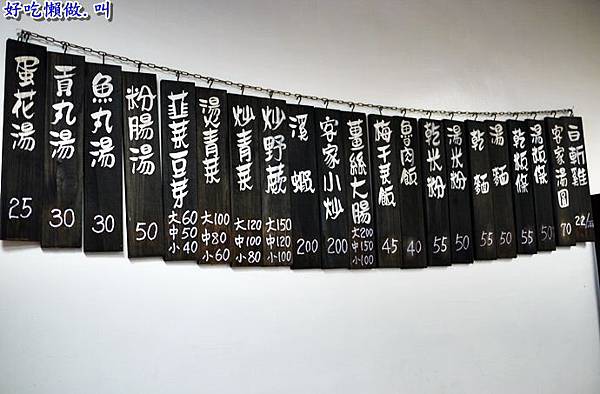 好吃懶做.叫
蛋花湯 25
貢丸湯 30
魚丸湯 30
粉腸湯 50
韮菜豆芽 大60 中50 小40
燙青菜 大100 中80 小60
炒青菜 大120 中100 小80
炒野蕨 大150 中120 小100
溪蝦 200
客家小炒 200
薑絲大腸 大200 中150 小100
梅干菜飯 45
魯肉飯 40
乾米粉 55
湯米粉 50
乾麵 55
湯麵 50
乾粄條 55
湯粄條 50
客家湯圓 70
白斬雞